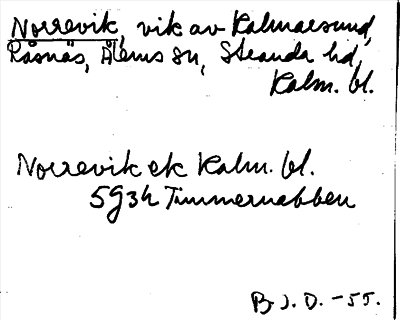 Norrevik, vik av Kalmarsund,
Råsnäs, Ålems sn, Stranda hd,
Kalm. bl.
Norrevik ek Kalm. bl.
5G3h Timmernabben
B.J.D. -55.